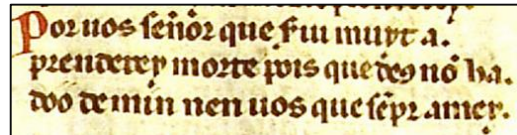 Por uos señor que fui muyt a.
prenderey morte pois que deꝯ nō ha.
doo de min nen uos que sēpr amey.